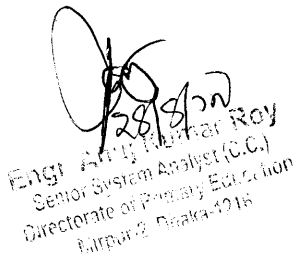 28/8/১৭
Engr. Kumar Roy
Senior System Analyst (C.C.)
Directorate of Primary Education
Mirpur-2, Dhaka-1216